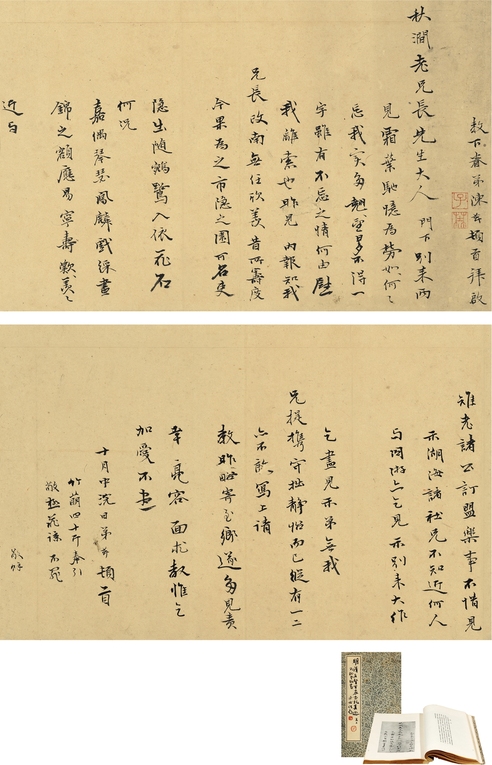 教下眷弟陳芹頓首拜啟
秋澗老兄長先生大人 門下別來兩
見霜葉馳憶為勞如何〻
忘我實多翹望旦不得一
字雖有不忘之情何由慰
我離索也昨見 內報知我
兄長改南無任欣羨昔所善度
今果為之市隱之園可名吏
隱出隨鵷鷺入依花石
何況
嘉偶琴瑟鳳麟戲綵晝
錦之額應易寧壽歎羨〻
近与
雉老諸公訂盟樂事不惜見
示湖海諸社兄不知近何人
与同游亦乞見示別來大作
乞盡見示弟無我
兄提攜守拙靜怡而已縱有一二
亦不敢寫上請
教昨晤寄至鄉遂多見責
幸亮容面求教惟乞
加愛不盡
十月中浣日弟芹頓首
竹萌四十斤奉引
敬